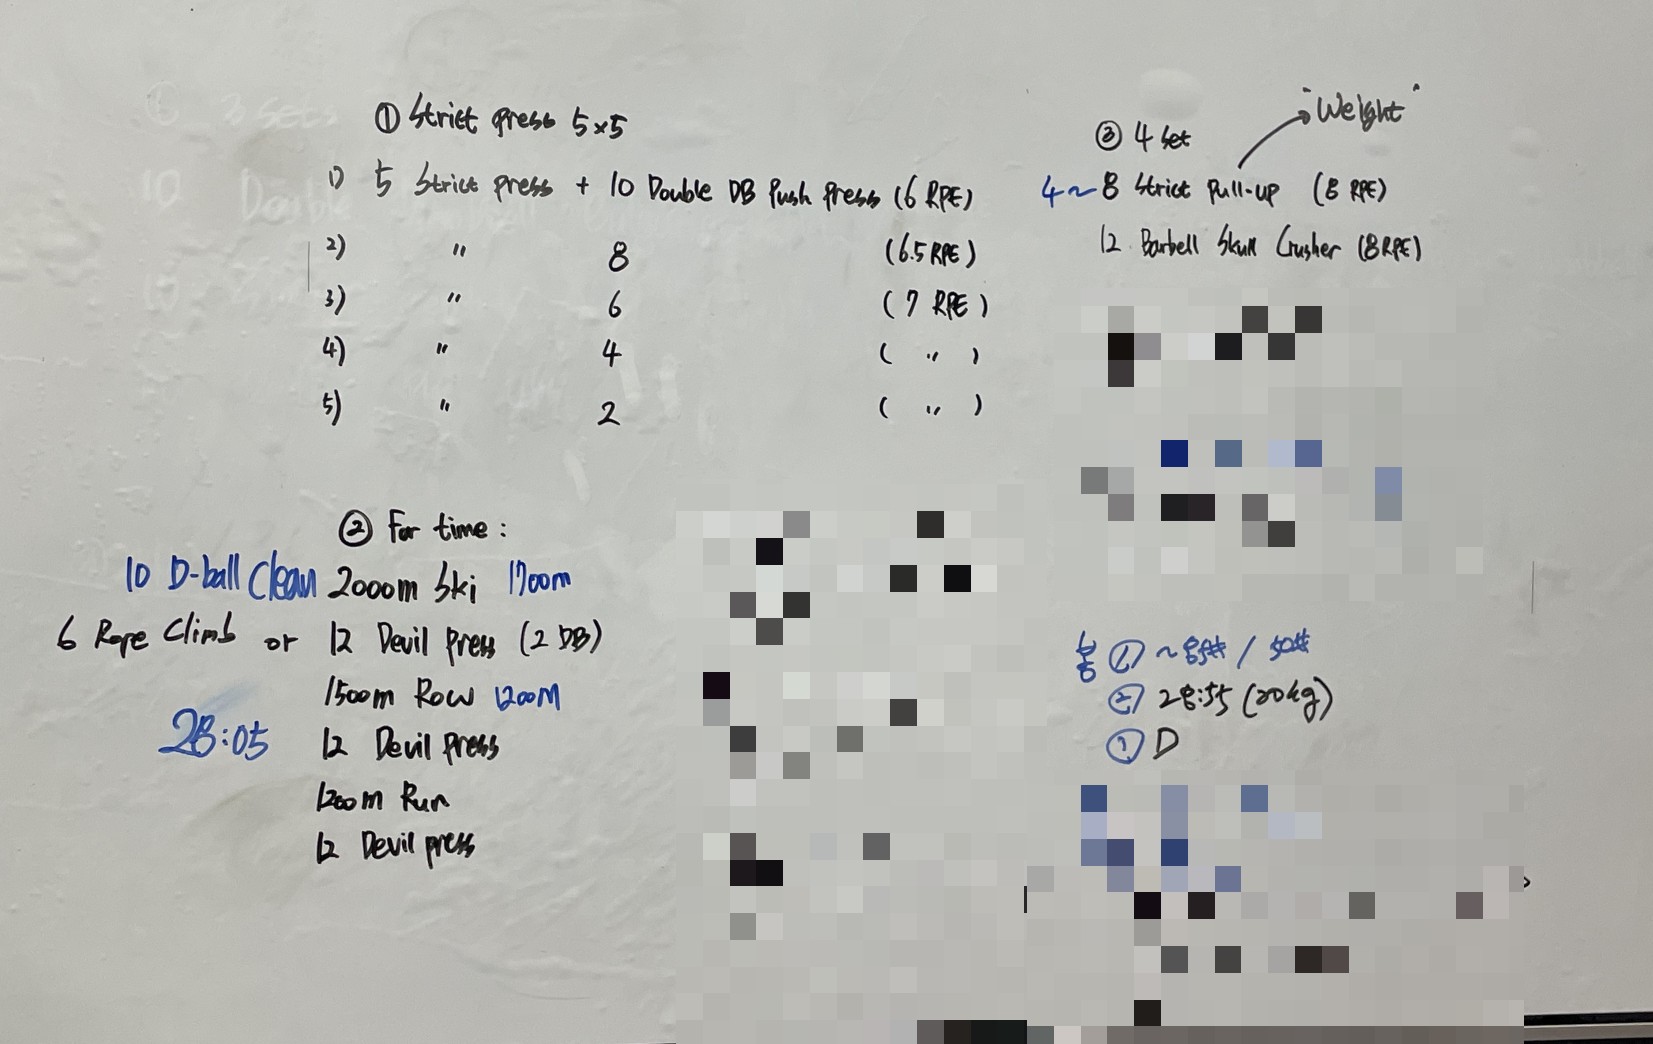 ① Strict press 5x5
1) 5 Strict press + 10 Double DB Push press (6 RPE)
2) " 8 (6.5 RPE)
3) " 6 (7 RPE)
4) " 4 ( " )
5) " 2 ( " )
② For time :
10 D-ball Clean 2000m Ski 1700m
6 Rope Climb or 12 Devil press (2 DB)
1500m Row 1200M
28:05
12 Devil press
1200m Run
12 Devil press
"Weight"
③ 4 set
4~8 Strict pull-up (8 RPE)
12 Barbell Skull Crusher (8 RPE)
① ~85# / 50#
② 28:55 (20kg)
D